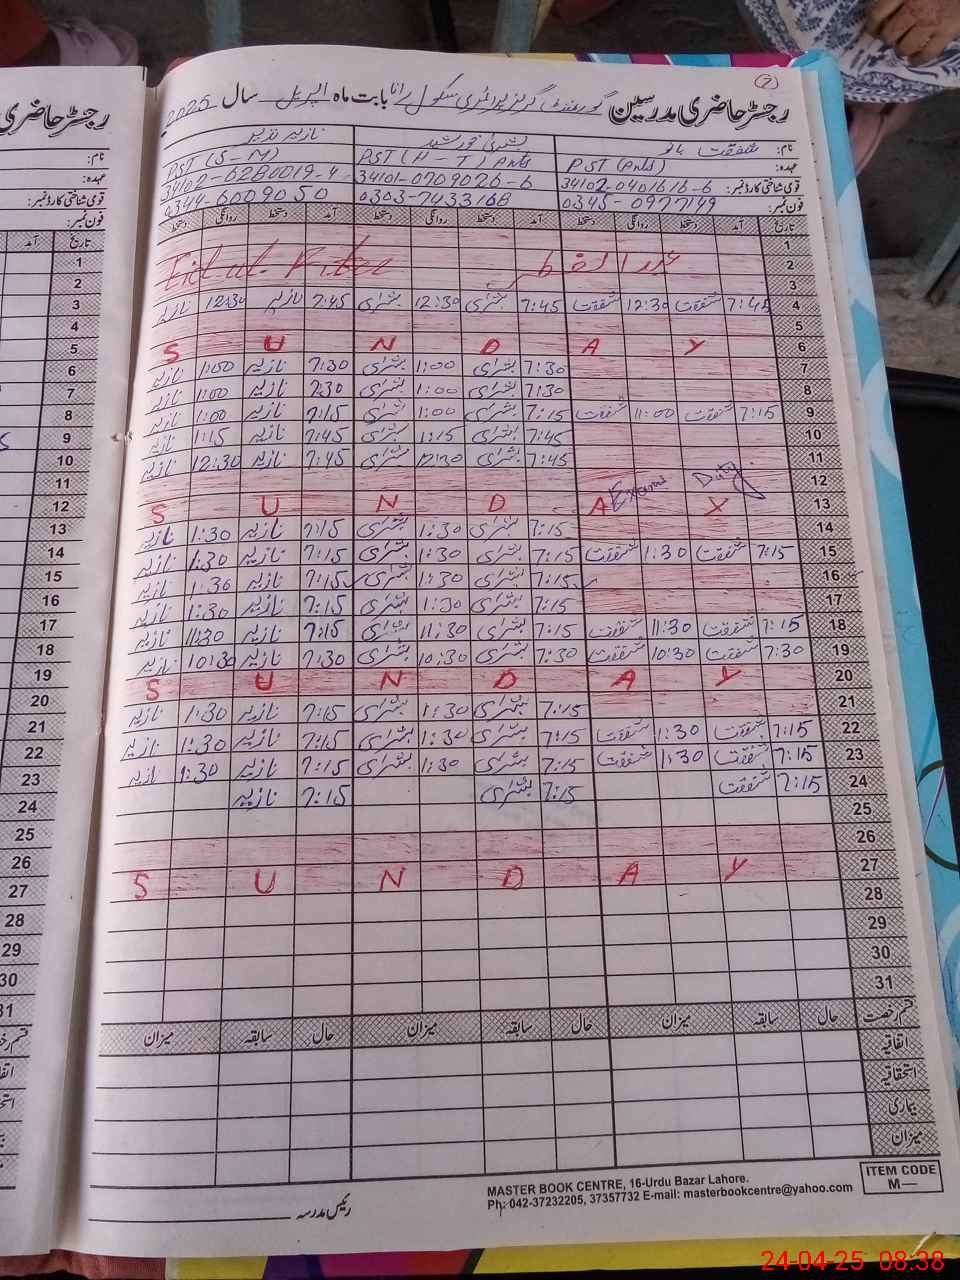 رجسٹر حاضری مدرسین گورنمنٹ گرلز پرائمری سکول رانا بابت ماہ اپریل سال 2025
نام: شفقت بانو بشریٰ خورشید نازیہ نذیر
عہدہ: PST (Pnld) PST (H-T) Pnld PST (S-M)
قومی شناختی کارڈ نمبر: 34102-0401616-6 34101-0709026-6 34102-6280019-4
فون نمبر: 0345-0977149 0303-7433168 0344-6009050
تاریخ آمد دستخط روانگی دستخط آمد دستخط روانگی دستخط آمد دستخط روانگی دستخط
1
2 عید الفطر Eid ul Fiter
3
4 7:45 شفقت 12:30 شفقت 7:45 بشریٰ 12:30 بشریٰ 7:45 نازیہ 12:30 نازیہ
5
6 S U N D A Y
7 7:30 بشریٰ 1:00 بشریٰ 7:30 نازیہ 1:00 نازیہ
8 7:30 بشریٰ 1:00 بشریٰ 7:30 نازیہ 1:00 نازیہ
9 7:15 شفقت 11:00 شفقت 7:15 بشریٰ 1:00 بشریٰ 7:15 نازیہ 1:00 نازیہ
10 7:45 بشریٰ 1:15 بشریٰ 7:45 نازیہ 1:15 نازیہ
11 7:45 بشریٰ 12:30 بشریٰ 7:45 نازیہ 12:30 نازیہ
12 Exams Duty
13 S U N D A Y
14 7:15 بشریٰ 1:30 بشریٰ 7:15 نازیہ 1:30 نازیہ
15 7:15 شفقت 1:30 شفقت 7:15 بشریٰ 1:30 بشریٰ 7:15 نازیہ 1:30 نازیہ
16 7:15 بشریٰ 1:30 بشریٰ 7:15 نازیہ 1:30 نازیہ
17 7:15 بشریٰ 1:30 بشریٰ 7:15 نازیہ 1:30 نازیہ
18 7:15 شفقت 11:30 شفقت 7:15 بشریٰ 11:30 بشریٰ 7:15 نازیہ 11:30 نازیہ
19 7:30 شفقت 10:30 شفقت 7:30 بشریٰ 10:30 بشریٰ 7:30 نازیہ 10:30 نازیہ
20 S U N D A Y
21 7:15 بشریٰ 1:30 بشریٰ 7:15 نازیہ 1:30 نازیہ
22 7:15 شفقت 1:30 شفقت 7:15 بشریٰ 1:30 بشریٰ 7:15 نازیہ 1:30 نازیہ
23 7:15 شفقت 1:30 شفقت 7:15 بشریٰ 1:30 بشریٰ 7:15 نازیہ 1:30 نازیہ
24 7:15 شفقت 7:15 بشریٰ 7:15 نازیہ
25
26
27 S U N D A Y
28
29
30
31
قسم رخصت حال سابقہ میزان حال سابقہ میزان حال سابقہ میزان
اتفاقیہ
استحقاقیہ
بیماری
میزان
رئیس مدرسہ
MASTER BOOK CENTRE, 16-Urdu Bazar Lahore.
Ph: 042-37232205, 37357732 E-mail: masterbookcentre@yahoo.com
ITEM CODE
M—
رجسٹر حاضری
نام:
عہدہ:
قومی شناختی کارڈ نمبر:
فون نمبر:
تاریخ آمد
1
2
3
4
5
6
7
8
9
10
11
12
13
14
15
16
17
18
19
20
21
22
23
24
25
26
27
28
29
30
31
24-04-25 08:38